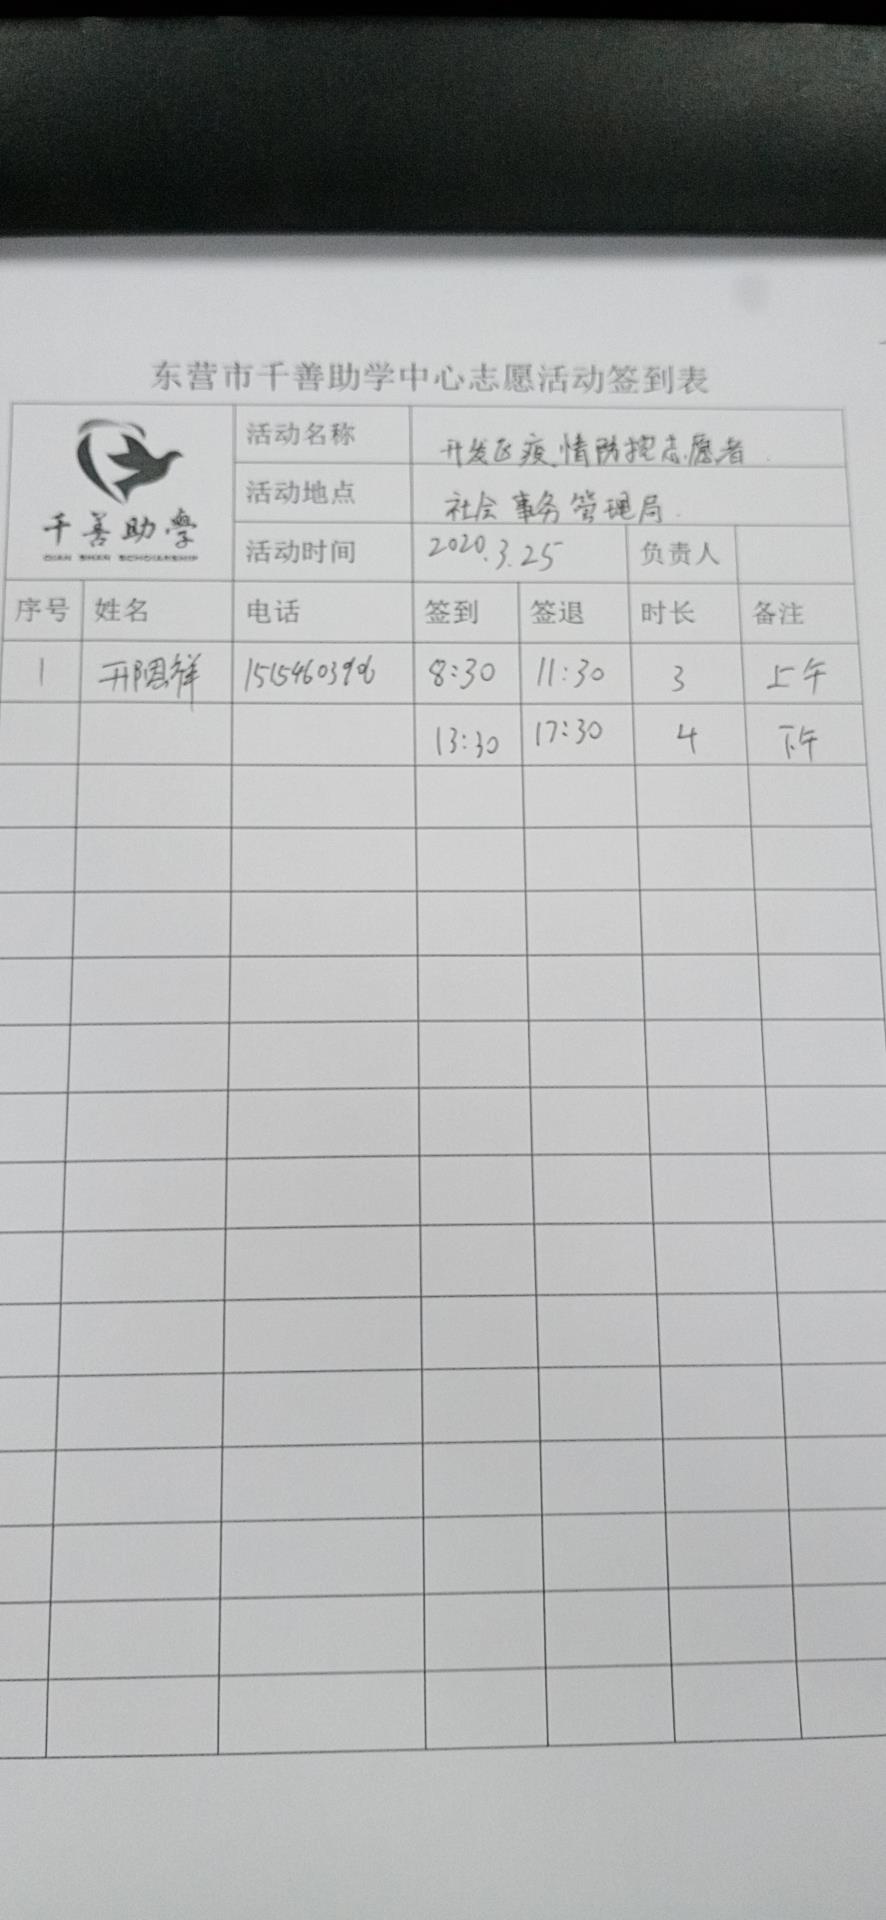 东营市千善助学中心志愿活动签到表
千善助學
QIAN SHAN SCHOLARSHIP
活动名称 开发区疫情防控志愿者
活动地点 社会事务管理局
活动时间 2020.3.25 负责人
序号 姓名 电话 签到 签退 时长 备注
1 祥 8:30 11:30 3 上午
13:30 17:30 4 下午